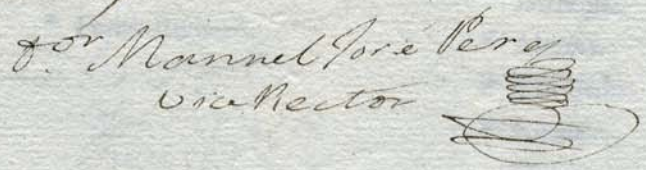 Dor Manuel José Perez
Vice Rector